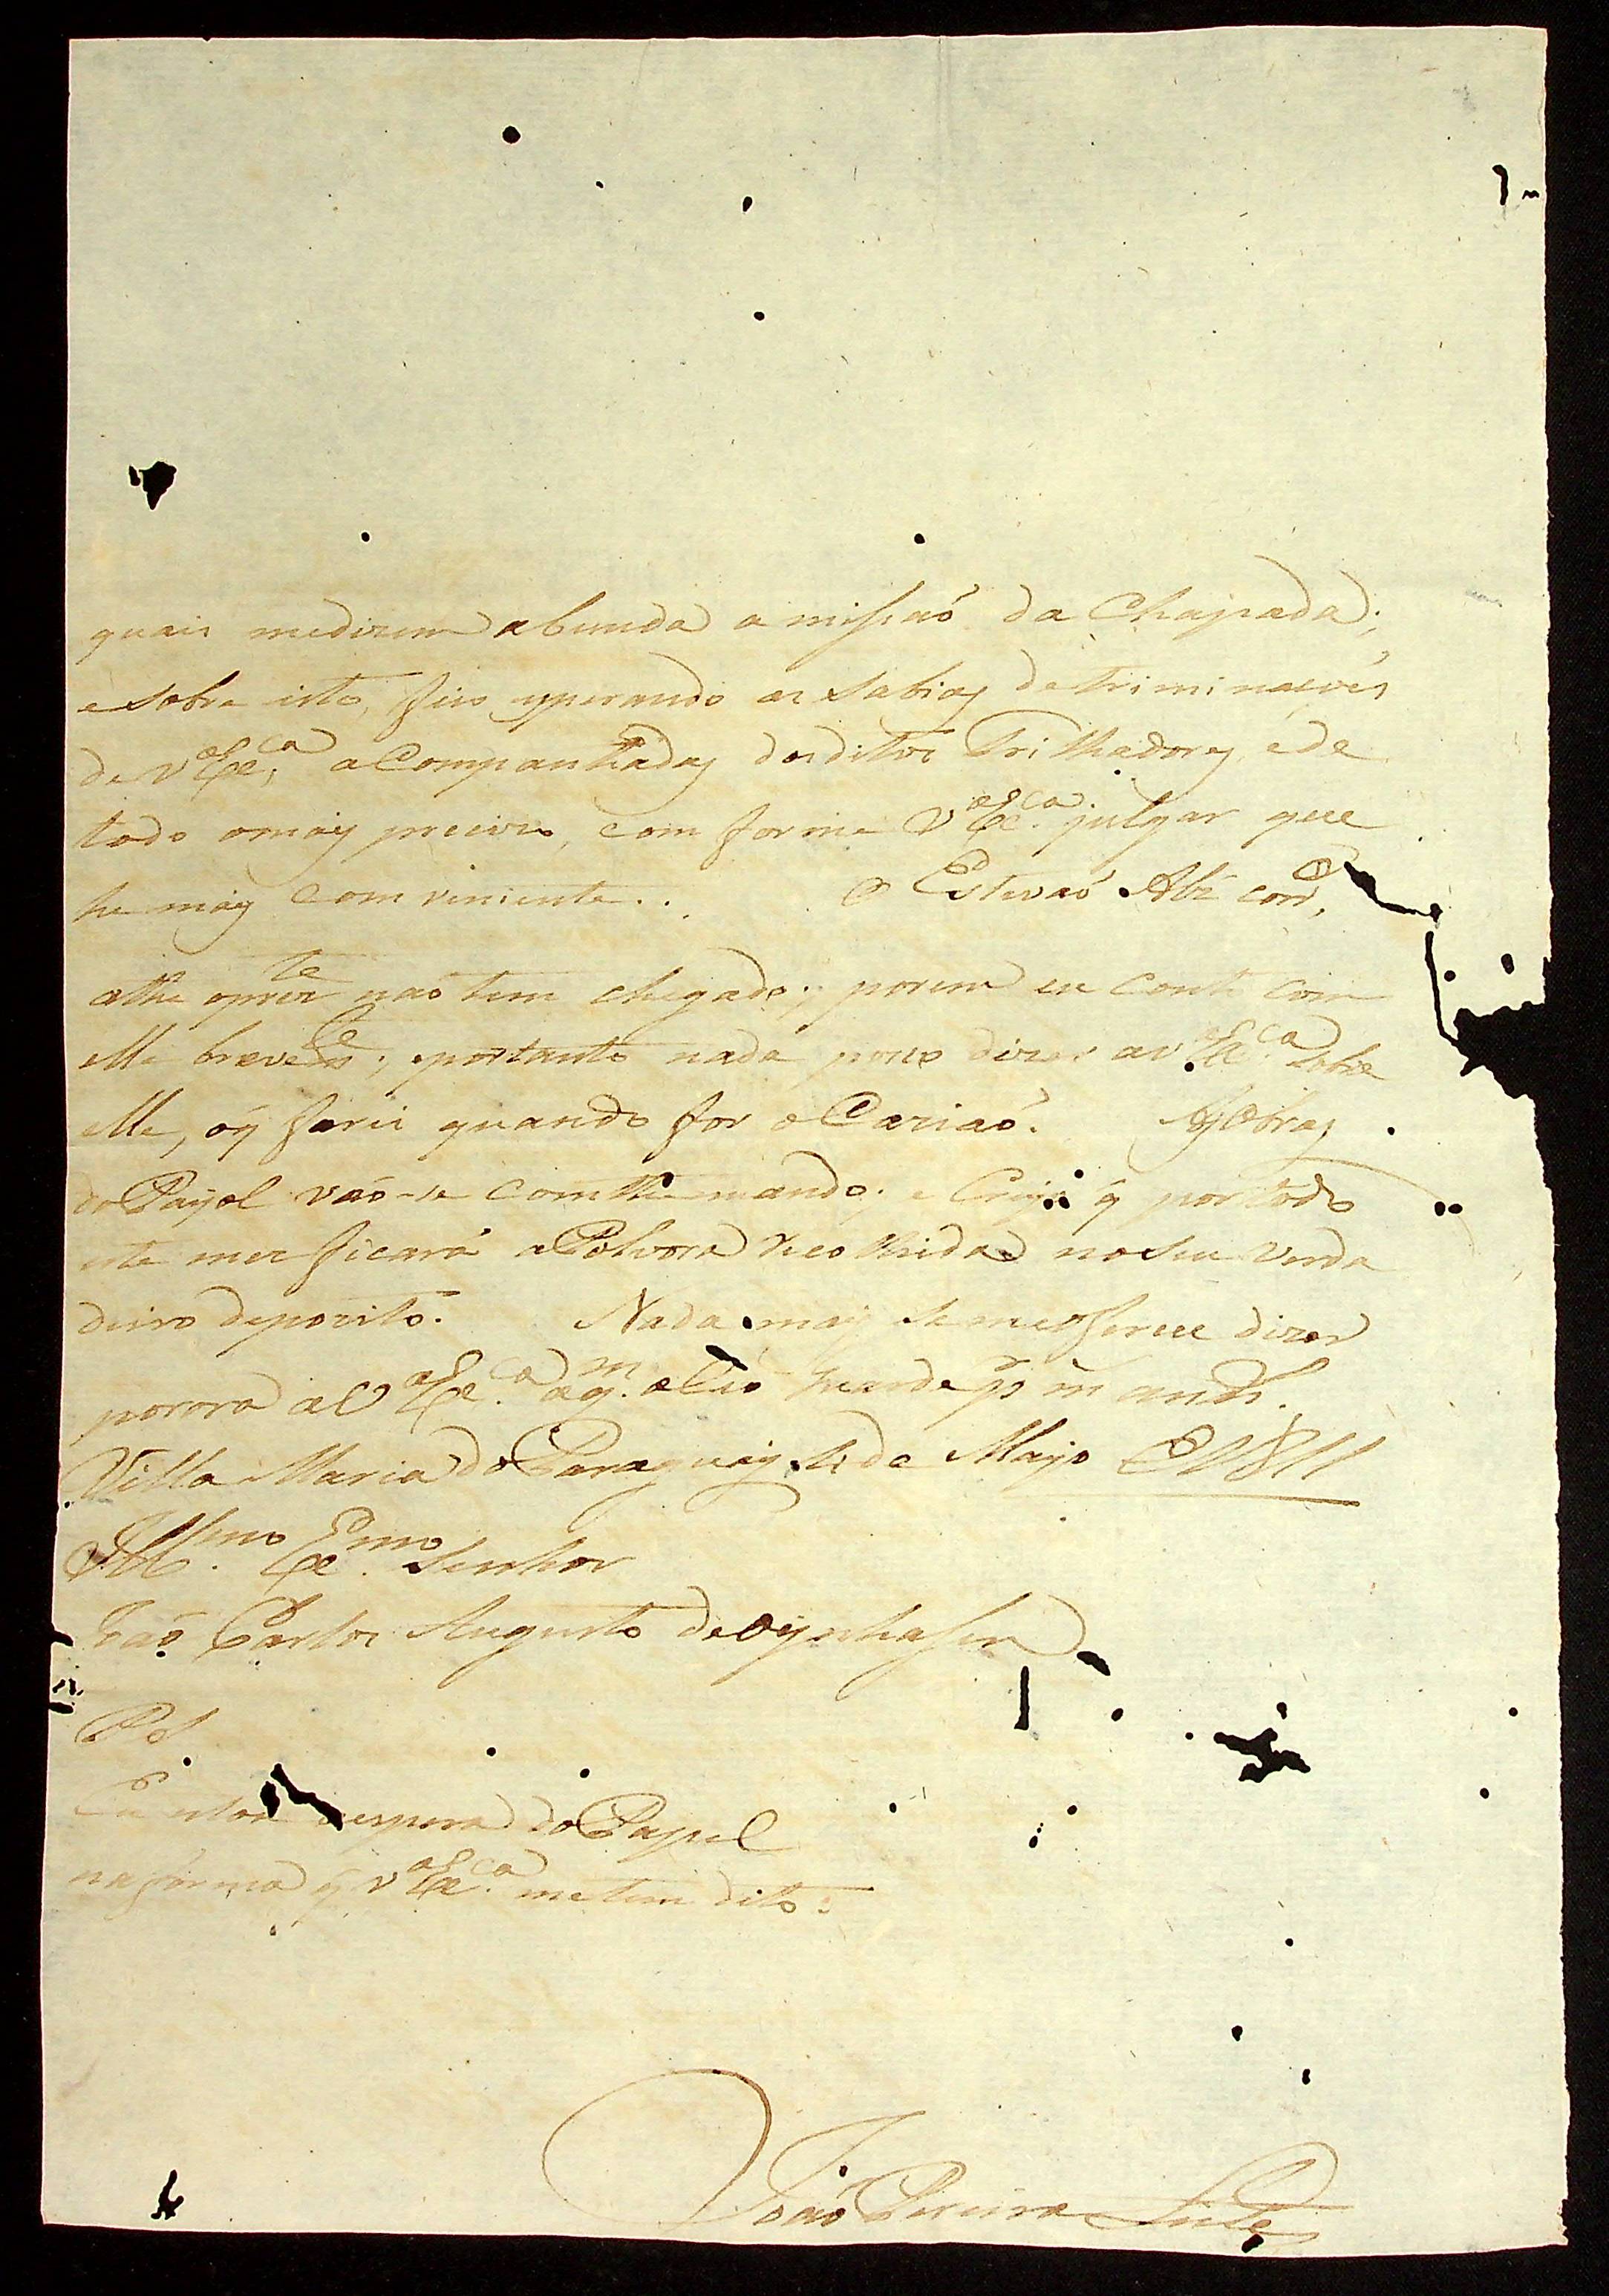 quais medizem abunda a missaó da Chapada;
e sobre isto, fico esperando as Sabias detriminaçoes
de V Ex.ca aCompanhadas dos ditos Trilhadores, e de
todo o mais precizo, com forme V Ex.ca julgar que
he mais Comveniente.. O Estevaó Alz
athe oprezte naó tem chegado; porem eu Conto com
elle breve; eportanto nada poso dizer a V Ex.ca sobre
elle, oq farei quando for o Caziaó. As Obras
do Payol vaó-se Comthenuando; e q por todo
este mez ficará a Polvora recolhida no seu verda
deiro depozito. Nada mais se me offerece dizer
porora a V Ex.ca aq.m D guarde p.r m an.
Villa Maria do Paraguay de Mayo 1811
Ill.mo Ex.mo Senhor
Joaó Carlos Augusto de Oyenhasen
PS
Eu estou aespera do Papel
na forma q V Ex.ca me tem dito:
Joaó Pereira Leite